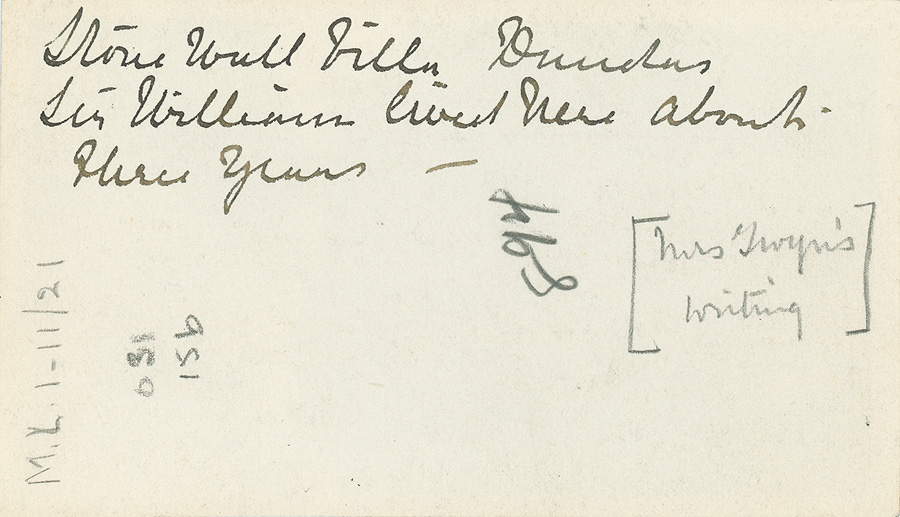 Stone Wall Villa Dundas
Sir William lived here about
three years —
[Mrs Gwyn's
writing]
M.K. 1-11/21